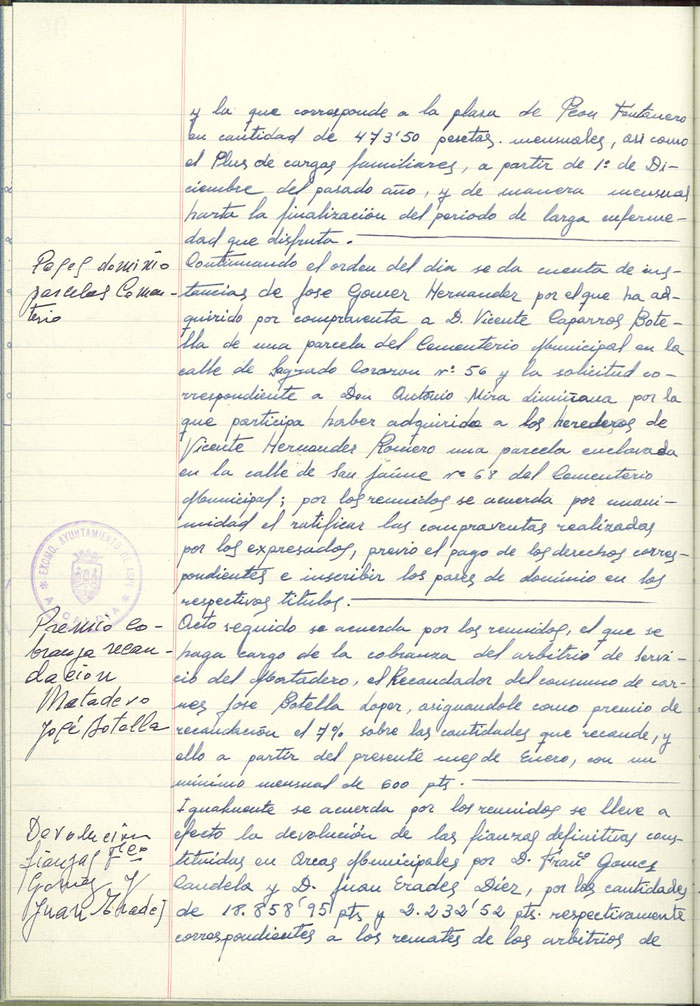 y la que corresponde a la plasa de Peon Fontanero
en cantidad de 473'50 pesetas. mensuales, asi como
el Plus de cargas familiares, a partir de 1º de Di-
ciembre del pasado año, y de manera mensual
harta la finalización del periodo de larga enferme-
dad que disfruta.
Pases dominio
parcelas Cemen-
terio
Continuando el orden del dia se da cuenta de ins-
tancias de Jose Gomer Hernander por el que ha ad-
quirido por compraventa a D. Vicente Caparros Bote-
lla de una parcela del Cementerio Municipal en la
calle de Sagrado Corazon nº 56 y la solicitud co-
rrespondiente a Don Antonio Mira Limiñana por la
que participa haber adquirido a los herederos de
Vicente Hernander Romero una parcela enclavada
en la calle de San Jaime nº 68 del Cementerio
Municipal; por los reunidos se acuerda por unani-
midad el ratificar las compraventas realizadas
por los expresados, previo el pago de los derechos corres-
pondientes e inscribir los pases de dominio en los
respectivos titulos.
EXCMO. AYUNTAMIENTO DE ASPE
ALCALDIA
Premio co-
branza recau-
dación
Matadero
José Botella
Acto seguido se acuerda por los reunidos, el que se
haga cargo de la cobranza del arbitrio de Servi-
cio del Matadero, el Recaudador del consumo de car-
nes Jose Botella Loper, asignandole como premio de
recaudación el 7% sobre las cantidades que recaude, y
ello a partir del presente mes de Enero, con un
minimo mensual de 600 pts.
Devolución
fianzas Fco
Gomez y
Juan Erades
Igualmente se acuerda por los reunidos se lleve a
efecto la devolución de las fianzas definitivas cons-
tituidas en Arcas Municipales por D. Franco Gomes
Candela y D. Juan Erades Diez, por las cantidades
de 18.858'95 pts y 2.232'52 pts. respectivamente
correspondientes a los remates de los arbitrios de